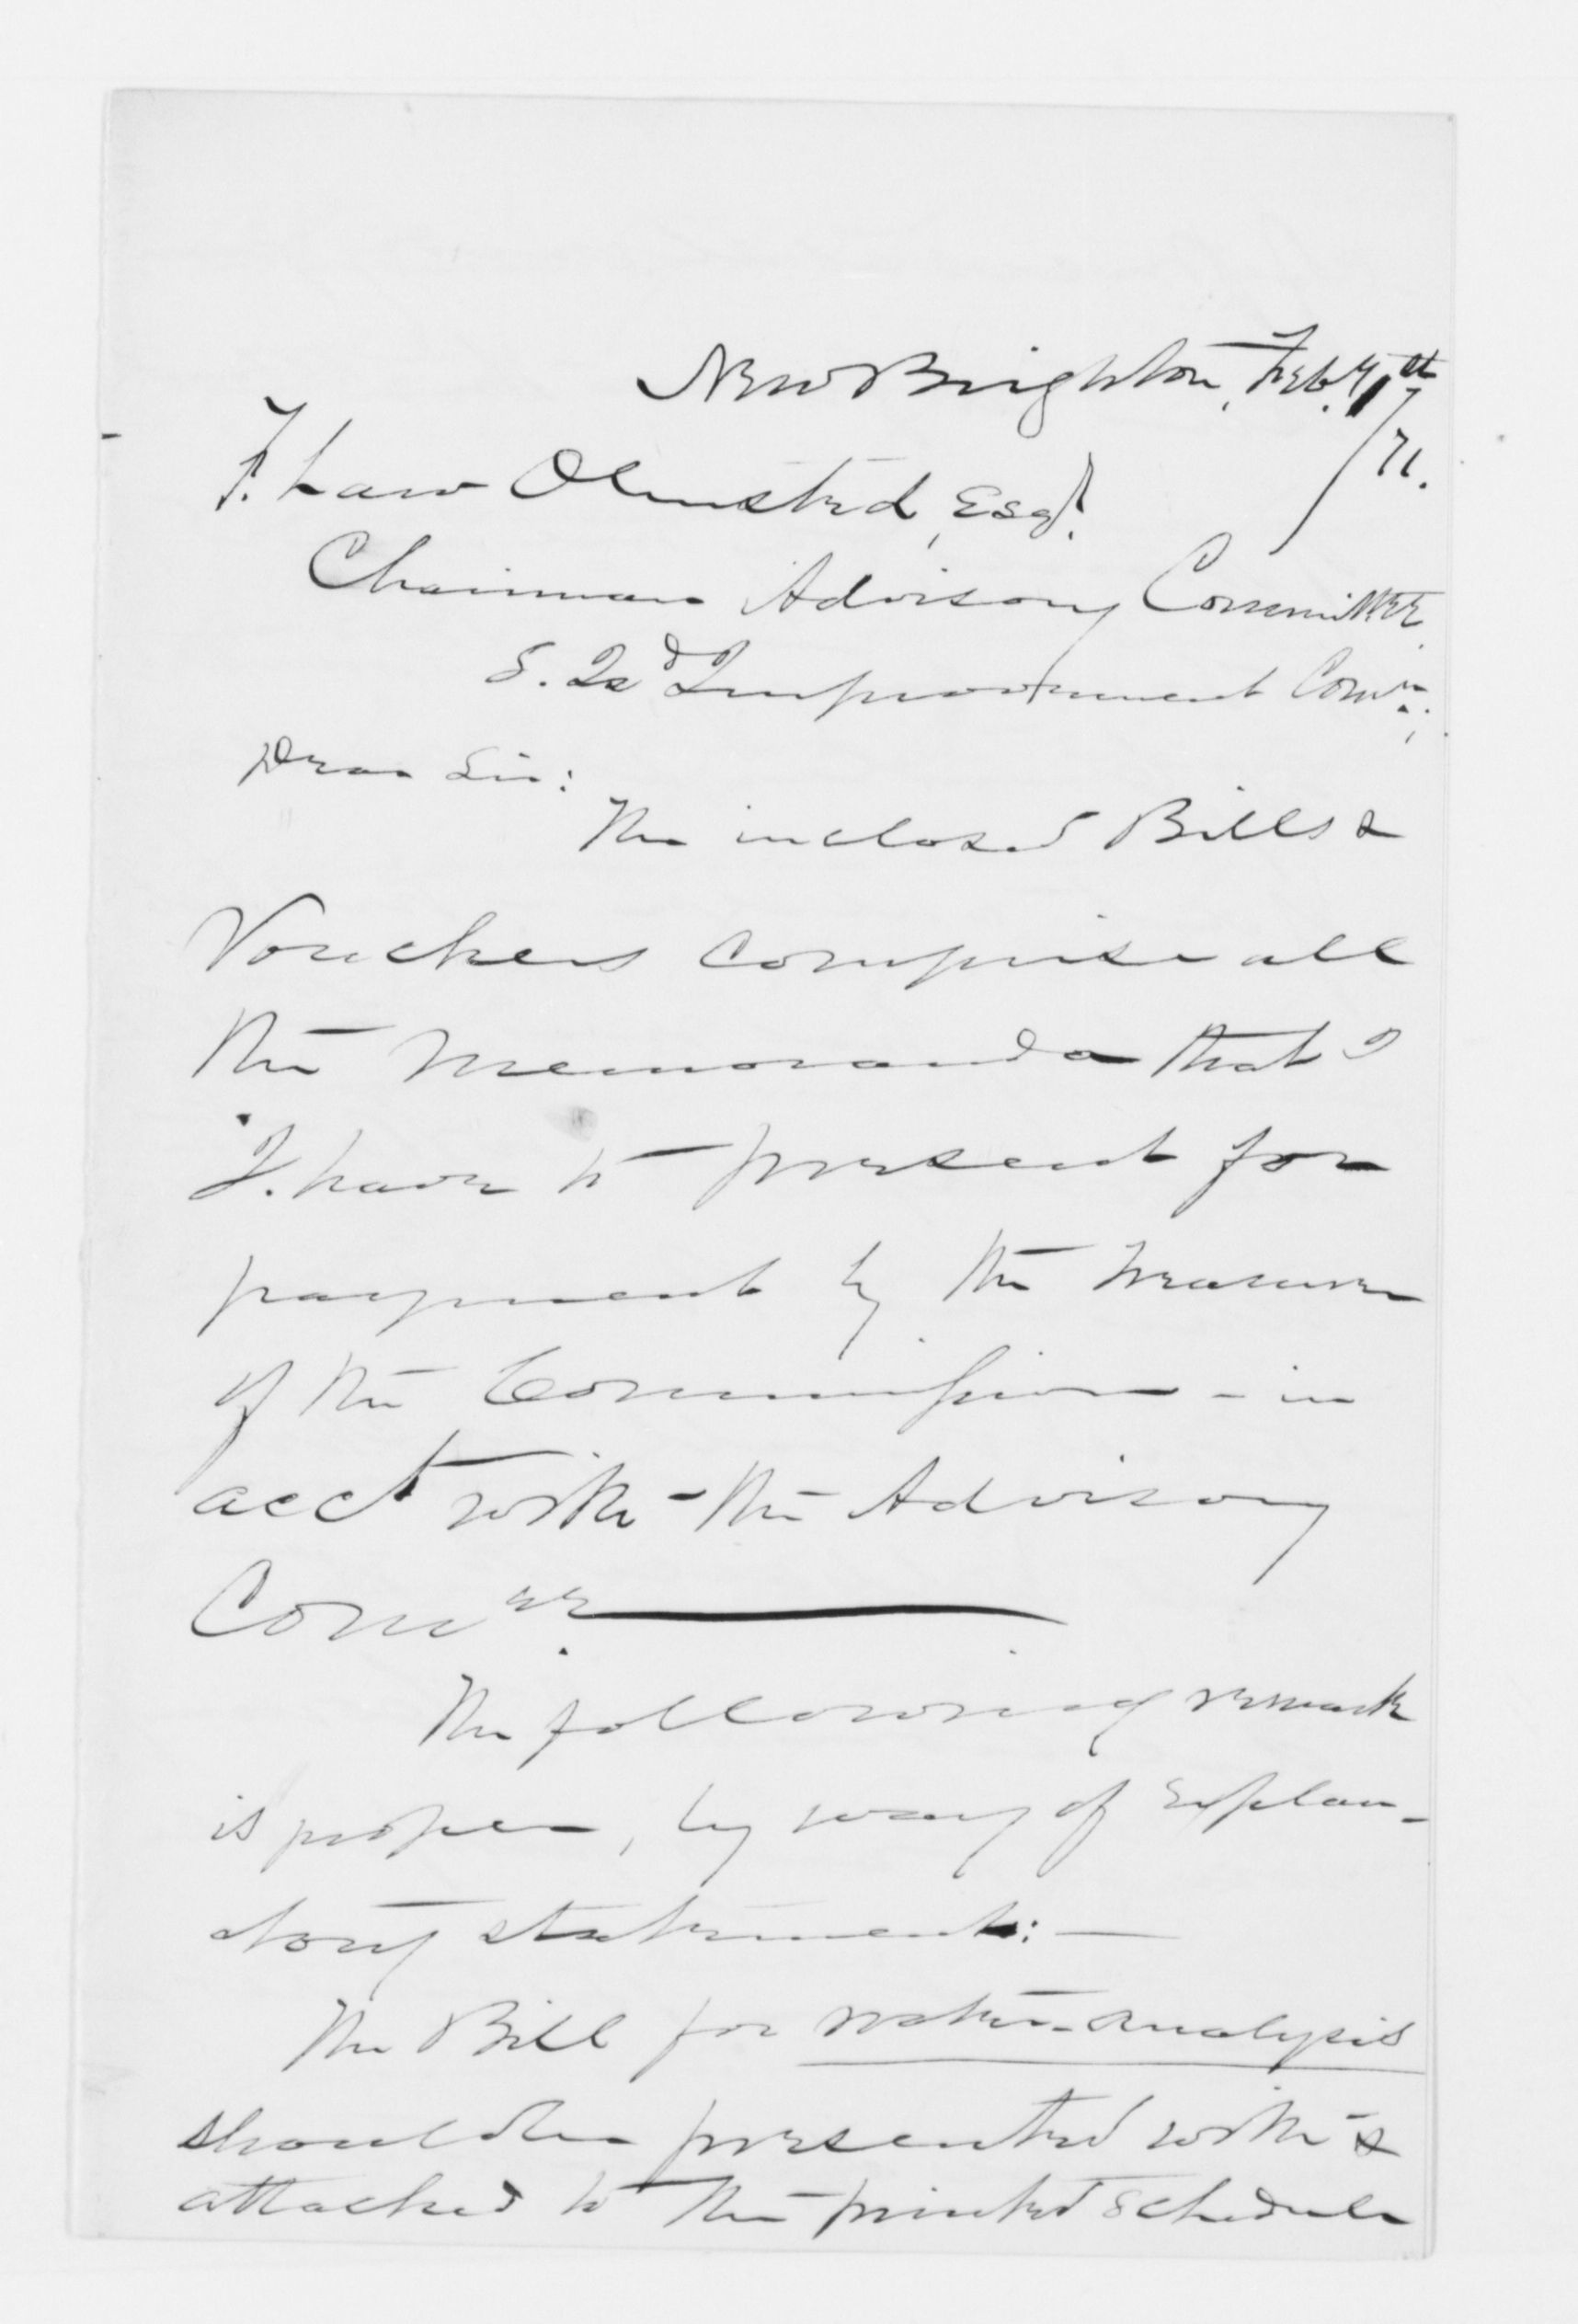 New Brighton, Feb.
/71.
F. Law Olmsted, Esqr.
Chairman Advisory Committee
S. Isd Improvement Comn.;
Dear Sir:
The inclosed Bills &
Vouchers comprise all
the memoranda that I
I. have to present for
payment by the Treasurer
of the Commission - in
acct with - the Advisory
Comee.
The following remark
is proper, by way of explan-
atory statement: —
The Bill for water-analysis
should be presented with &
attached to the printed Schedule